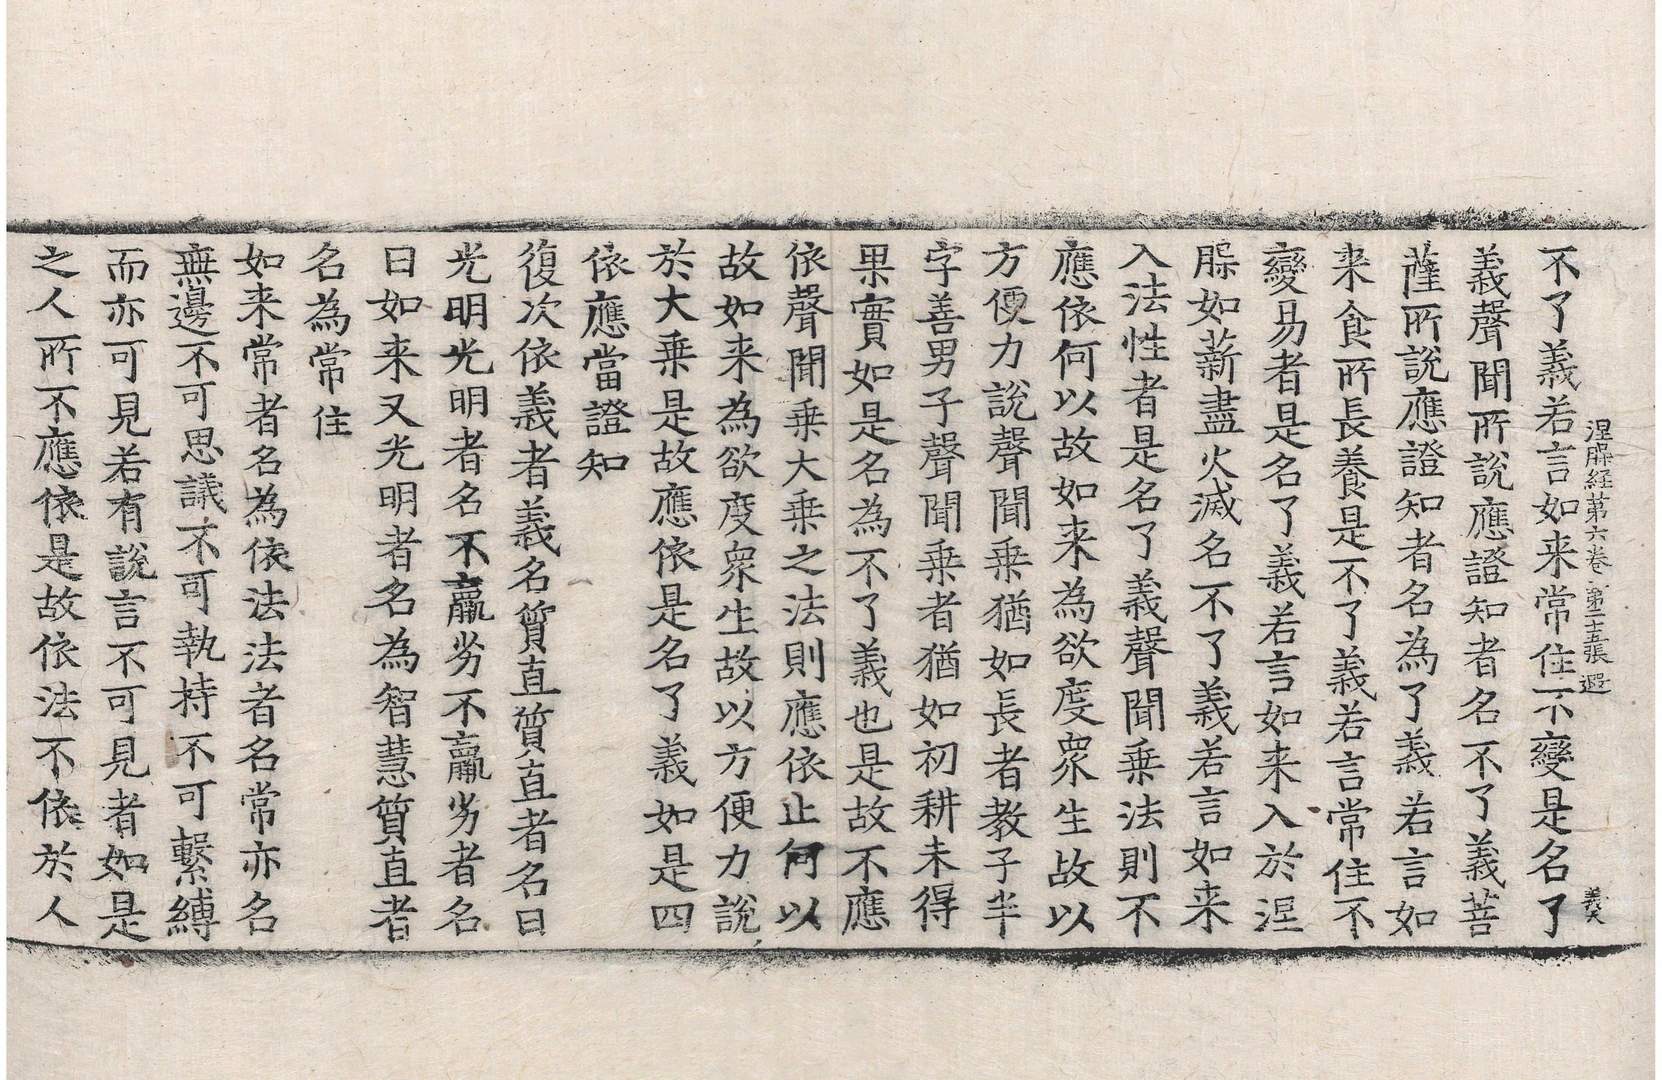 涅槃経第六卷 第二十五張 遐
義夫
不了義若言如来常住不變是名了
義聲聞所說應證知者名不了義菩
薩所說應證知者名為了義若言如
来食所長養是不了義若言常住不
變易者是名了義若言如来入於涅
槃如薪盡火滅名不了義若言如来
入法性者是名了義聲聞乗法則不
應依何以故如来為欲度衆生故以
方便力說聲聞乗猶如長者教子半
字善男子聲聞乗者猶如初耕未得
果實如是名為不了義也是故不應
依聲聞乗大乗之法則應依止何以
故如来為欲度衆生故以方便力說
於大乗是故應依是名了義如是四
依應當證知
復次依義者義名質直質直者名曰
光明光明者名不羸劣不羸劣者名
曰如来又光明者名為智慧質直者
名為常住
如来常者名為依法法者名常亦名
無邊不可思議不可執持不可繫縛
而亦可見若有說言不可見者如是
之人所不應依是故依法不依於人